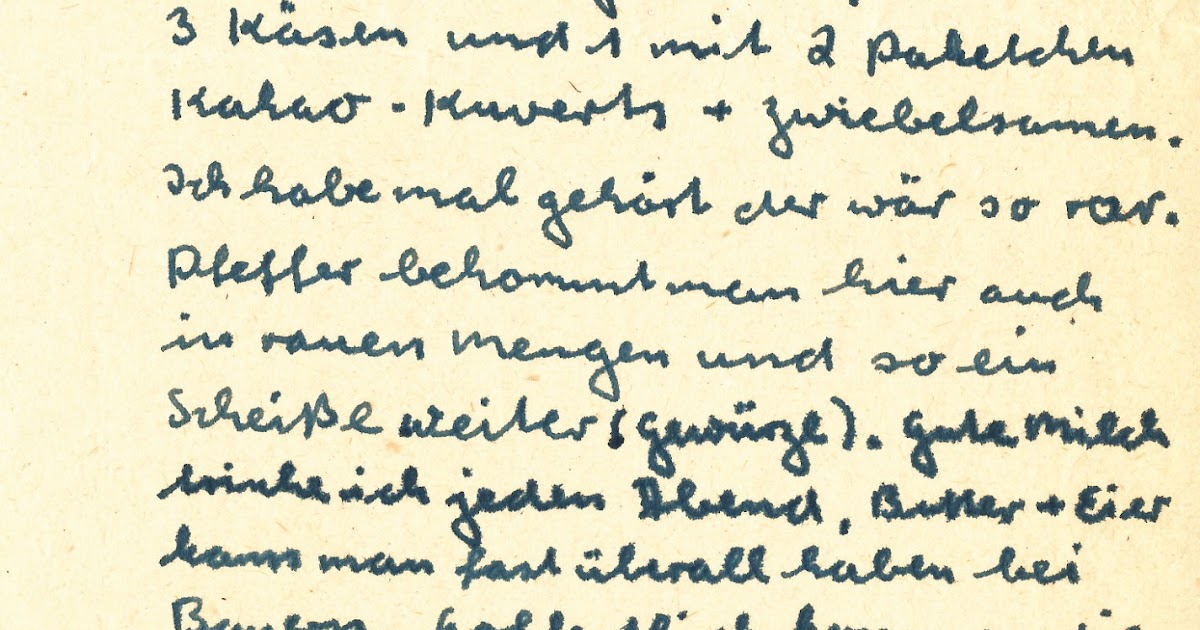 3 Käsen und 1 mit 2 Paketchen
Kakao - Kuverts + Zwiebelsamen.
Ich habe mal gehört der wär so rar.
Pfeffer bekommt man hier auch
in rauen Mengen und so ein
Scheiße weiter (Gewürze). Gute Milch
trinke ich jeden Abend, Butter + Eier
kann man fast überall haben bei
Bauern.